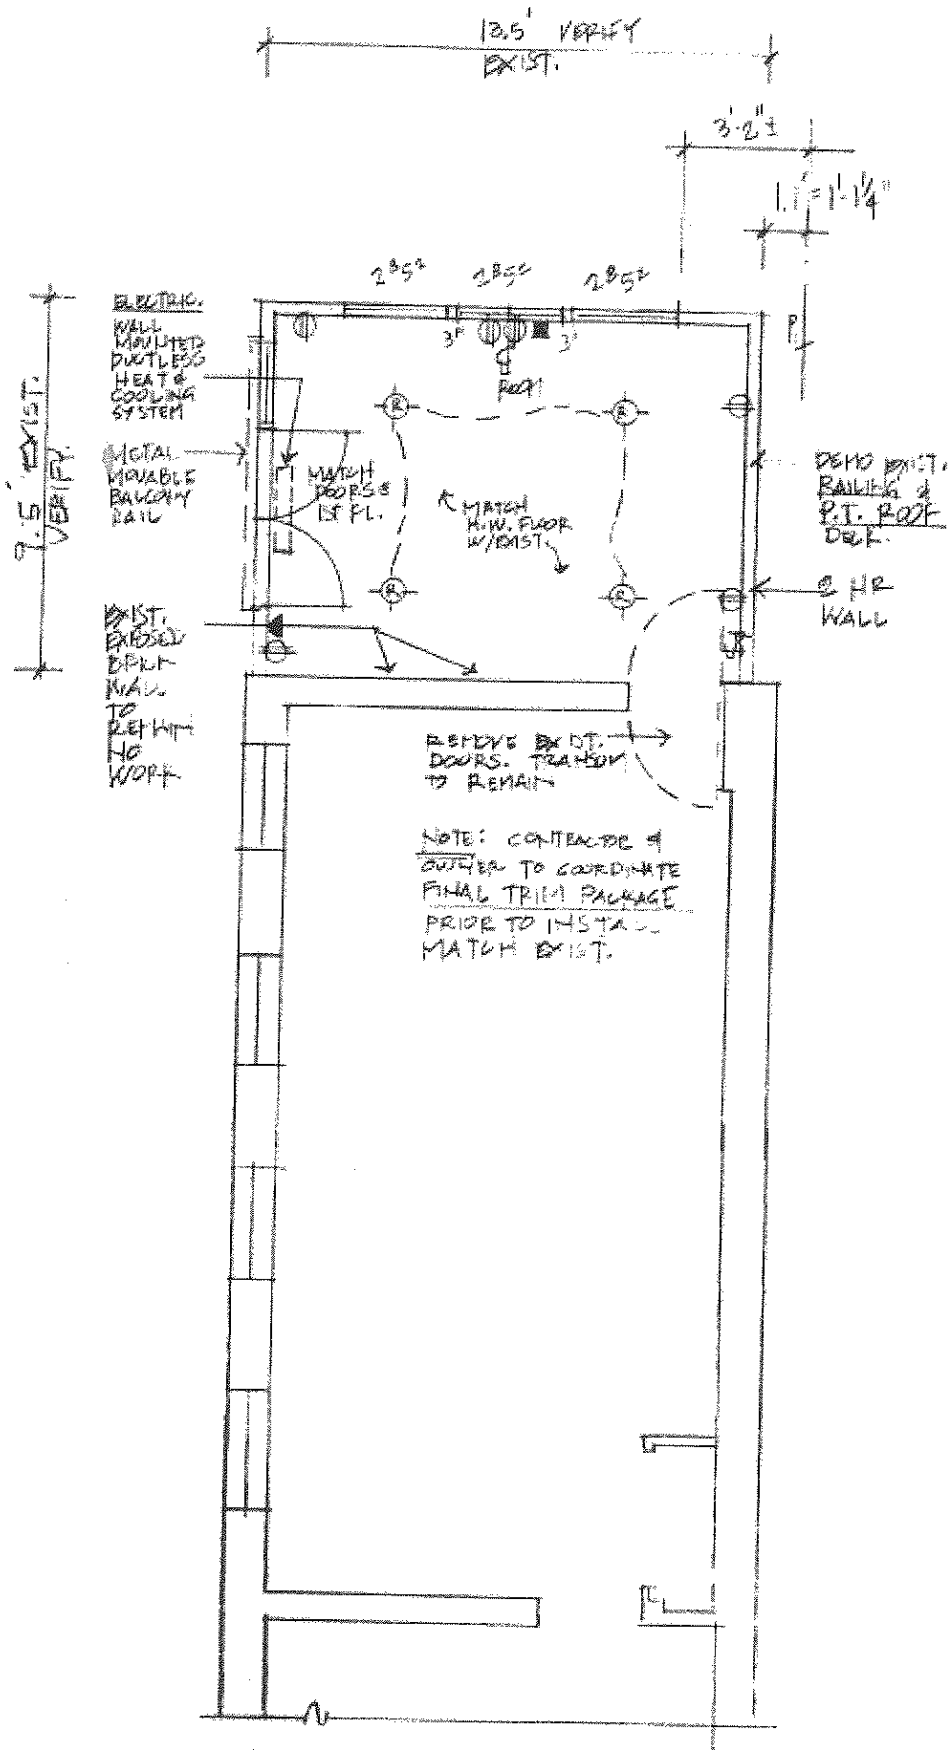 13.5' VERIFY
EXIST.
3'-2"±
1.1'=1'-1¼"
2⁸5²
2⁸5²
2⁸5²
ELECTRIC
WALL
MOUNTED
DUCTLESS
HEAT &
COOLING
SYSTEM
9.5' EXIST.
VERIFY.
METAL
MOVABLE
BALCONY
RAIL
MATCH
DOORS @
1ST FL.
R
R
MATCH
H.W. FLOOR
W/EXIST.
R
R
DEMO EXIST.
RAILING &
P.T. ROOF
DECK.
2 HR
WALL
EXIST.
EXPOSED
BRICK
WALL
TO
REMAIN
NO
WORK
REMOVE EXIST.
DOORS. TRANSOM
TO REMAIN
NOTE: CONTRACTOR &
OWNER TO COORDINATE
FINAL TRIM PACKAGE
PRIOR TO INSTALL
MATCH EXIST.